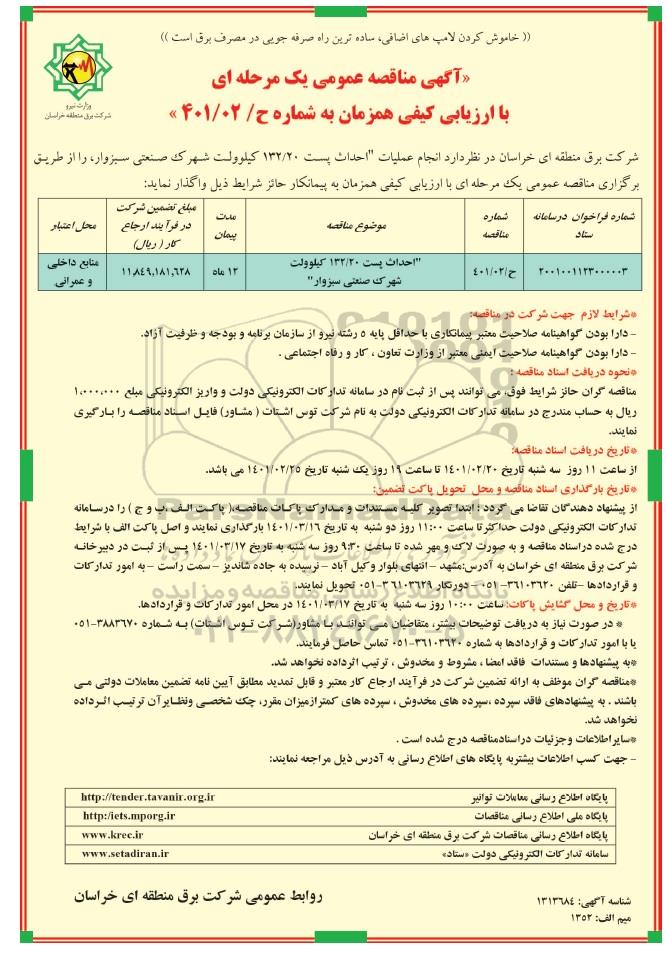 (( خاموش کردن لامپ های اضافی، ساده ترین راه صرفه جویی در مصرف برق است ))
وزارت نیرو
شرکت برق منطقه ای خراسان
«آگهی مناقصه عمومی یک مرحله ای
با ارزیابی کیفی همزمان به شماره ح/ ۴۰۱/۰۲ »
شرکت برق منطقه ای خراسان در نظردارد انجام عملیات "احداث پست ۱۳۲/۲۰ کیلوولت شهرک صنعتی سبزوار، را از طریق
برگزاری مناقصه عمومی یک مرحله ای با ارزیابی کیفی همزمان به پیمانکار حائز شرایط ذیل واگذار نماید:
شماره فراخوان درسامانه ستاد | شماره مناقصه | موضوع مناقصه | مدت پیمان | مبلغ تضمین شرکت در فرآیند ارجاع کار ( ریال) | محل اعتبار
۲۰۰۱۰۰۱۱۲۳۰۰۰۰۰۳ | ح/۴۰۱/۰۲ | "احداث پست ۱۳۲/۲۰ کیلوولت شهرک صنعتی سبزوار" | ۱۲ ماه | ۱۱،۸۴۹،۱۸۱،۶۲۸ | منابع داخلی و عمرانی
*شرایط لازم جهت شرکت در مناقصه:
- دارا بودن گواهینامه صلاحیت معتبر پیمانکاری با حداقل پایه ۵ رشته نیرو از سازمان برنامه و بودجه و ظرفیت آزاد.
- دارا بودن گواهینامه صلاحیت ایمنی معتبر از وزارت تعاون ، کار و رفاه اجتماعی .
*نحوه دریافت اسناد مناقصه :
مناقصه گران حائز شرایط فوق، می توانند پس از ثبت نام در سامانه تدارکات الکترونیکی دولت و واریز الکترونیکی مبلغ ۱،۰۰۰،۰۰۰
ریال به حساب مندرج در سامانه تدارکات الکترونیکی دولت به نام شرکت توس اشتات ( مشاور) فایل اسناد مناقصه را بارگیری
نمایند.
*تاریخ دریافت اسناد مناقصه:
از ساعت ۱۱ روز سه شنبه تاریخ ۱۴۰۱/۰۲/۲۰ تا ساعت ۱۹ روز یک شنبه تاریخ ۱۴۰۱/۰۲/۲۵ می باشد.
*تاریخ بارگذاری اسناد مناقصه و محل تحویل پاکت تضمین:
از پیشنهاد دهندگان تقاضا می گردد : ابتدا تصویر کلیه مستندات و مدارک پاکات مناقصه،( پاکت الف ،ب و ج ) را درسامانه
تدارکات الکترونیکی دولت حداکثرتا ساعت ۱۱:۰۰ روز دو شنبه به تاریخ ۱۴۰۱/۰۳/۱۶ بارگذاری نمایند و اصل پاکت الف با شرایط
درج شده دراسناد مناقصه و به صورت لاک و مهر شده تا ساعت ۹:۳۰ روز سه شنبه به تاریخ ۱۴۰۱/۰۳/۱۷ پس از ثبت در دبیرخانه
شرکت برق منطقه ای خراسان به آدرس:مشهد – انتهای بلوار وکیل آباد – نرسیده به جاده شاندیز – سمت راست – به امور تدارکات
و قراردادها –تلفن ۳۶۱۰۳۶۲۰-۰۵۱ – دورنگار ۳۶۱۰۳۶۲۹-۰۵۱ تحویل نمایند.
*تاریخ و محل گشایش پاکات: ساعت ۱۰:۰۰ روز سه شنبه به تاریخ ۱۴۰۱/۰۳/۱۷ در محل امور تدارکات و قراردادها.
* در صورت نیاز به دریافت توضیحات بیشتر، متقاضیان می توانند با مشاور(شرکت توس اشتات) به شماره ۳۸۸۳۶۷۰-۰۵۱
یا با امور تدارکات و قراردادها به شماره ۳۶۱۰۳۶۲۰-۰۵۱ تماس حاصل فرمایند.
*به پیشنهادها و مستندات فاقد امضا ، مشروط و مخدوش ، ترتیب اثرداده نخواهد شد.
*مناقصه گران موظف به ارائه تضمین شرکت در فرآیند ارجاع کار معتبر و قابل تمدید مطابق آیین نامه تضمین معاملات دولتی می
باشند . به پیشنهادهای فاقد سپرده ،سپرده های مخدوش ، سپرده های کمترازمیزان مقرر، چک شخصی ونظایرآن ترتیب اثرداده
نخواهد شد.
*سایراطلاعات وجزئیات دراسنادمناقصه درج شده است .
- جهت کسب اطلاعات بیشتربه پایگاه های اطلاع رسانی به آدرس ذیل مراجعه نمایند:
پایگاه اطلاع رسانی معاملات توانیر | http://tender.tavanir.org.ir
پایگاه ملی اطلاع رسانی مناقصات | http:/iets.mporg.ir
پایگاه اطلاع رسانی مناقصات شرکت برق منطقه ای خراسان | www.krec.ir
سامانه تدارکات الکترونیکی دولت «ستاد» | www.setadiran.ir
شناسه آگهی: ۱۳۱۳۶۸۴
میم الف: ۱۳۵۲
روابط عمومی شرکت برق منطقه ای خراسان
پایگاه اطلاع رسانی مناقصه و مزایده
۰۲۱-۸۸۳۴۹۶۷۰-۵